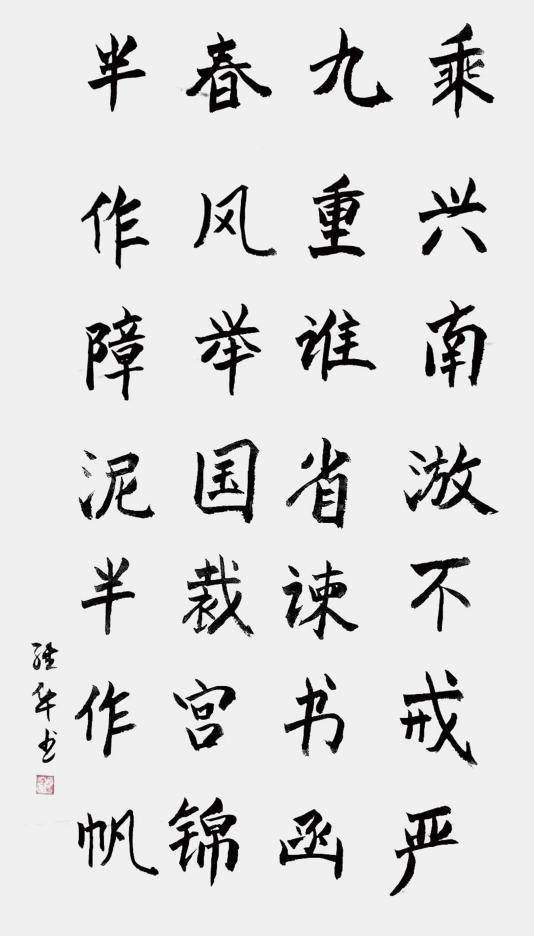 乘兴南游不戒严
九重谁省谏书函
春风举国裁宫锦
半作障泥半作帆